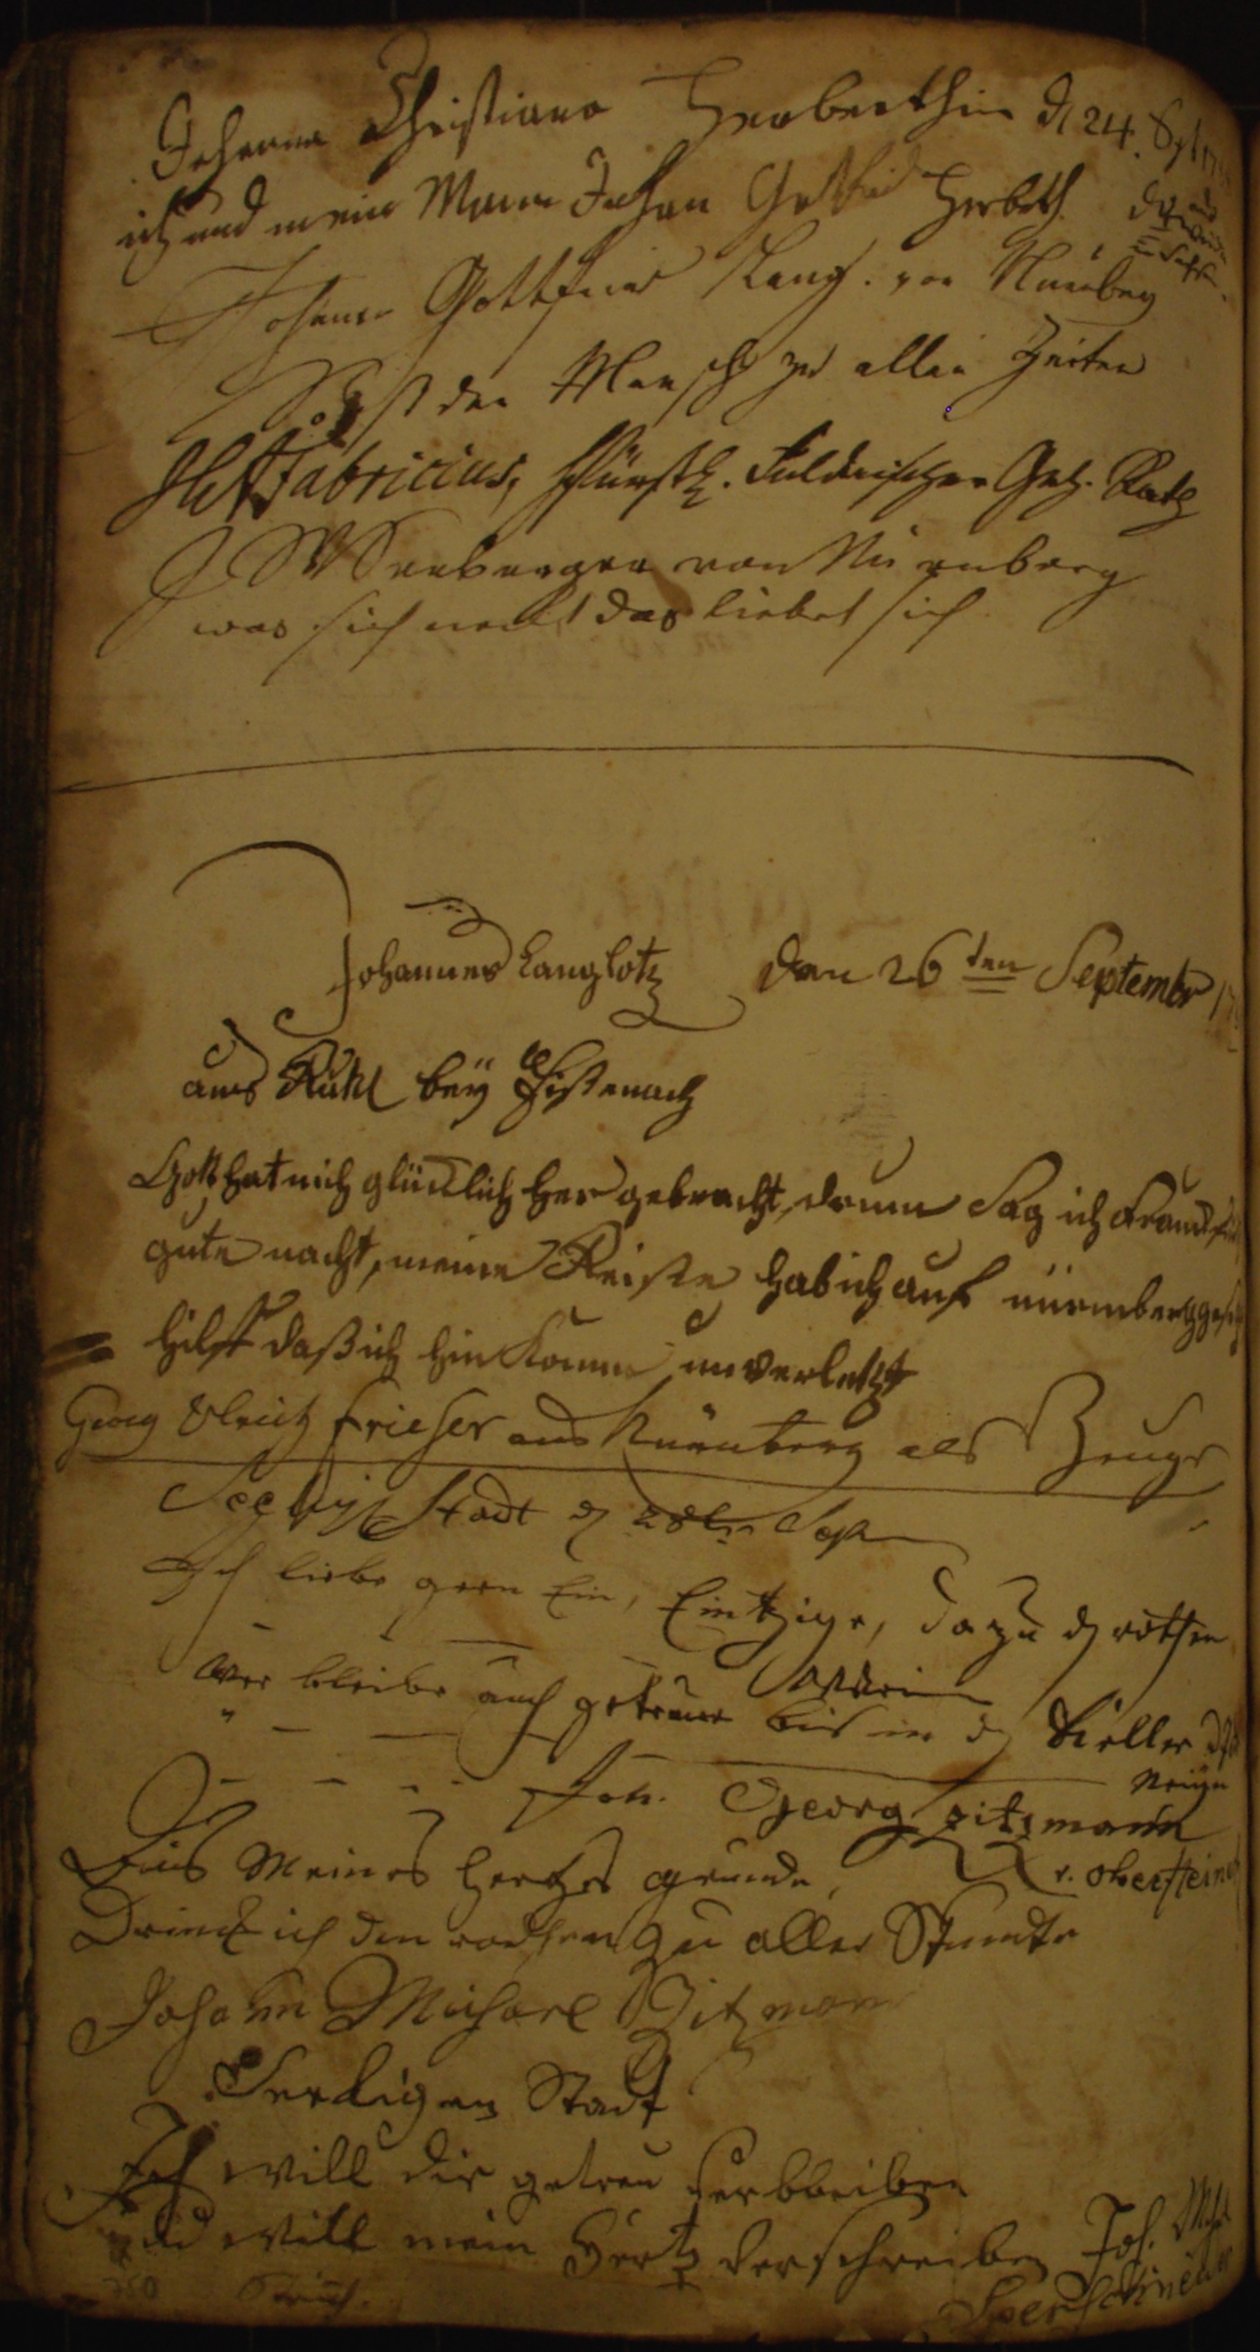 Johanna Christiana Herberthin d 24. Sept
ich und mein Mann Johan Gottfried Herbeth
Johann Gottfried Lang. von Nürnberg
ist der Mensch zu allen Zeiten
Fabricius, Fürstl. Fuldaischer Geh. Rath
Seeberger von Nürnberg
was sich neckt das liebet sich
Johannes Langlotz den 26ten Septembr
aus Ruhl beÿ Eissenach
Gott hat mich glücklich her gebracht, drum Sag ich
gute nacht, meine Reisse hab ich auf nürmberg
hilff daß ich hin komme unverletzt
Georg Ulrich frieser aus Nürnberg als Zeuge
Stadt d 28ten Sep
Ich liebe gern Ein, Eintzige, dazu d rothen
Wein
Wer bleibe auch getreue bis in d Keller
Neige
Joh. Georg Zitzmann
v. Obersteinach
Aus Meines Hertzes grunde,
Drinck ich den rothen zu aller Stunde
Johann Michael Zitzmann
Stadt
Ich will dir getreu verbleiben
und will mein Hertz verschreiben Joh.